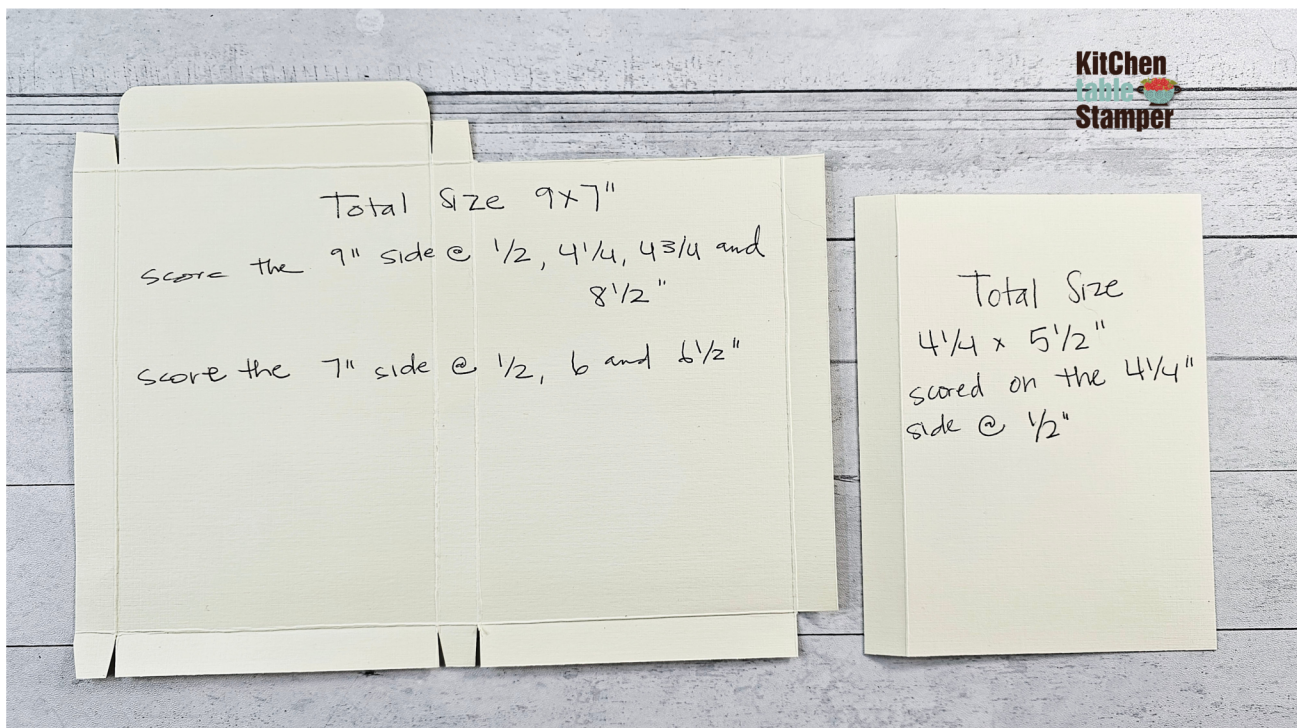 KitChen
table
Stamper
Total Size 9x7"
score the 9" side @ 1/2, 4 1/4, 4 3/4 and
8 1/2"
score the 7" side @ 1/2, 6 and 6 1/2"
Total Size
4 1/4 x 5 1/2"
scored on the 4 1/4"
side @ 1/2"